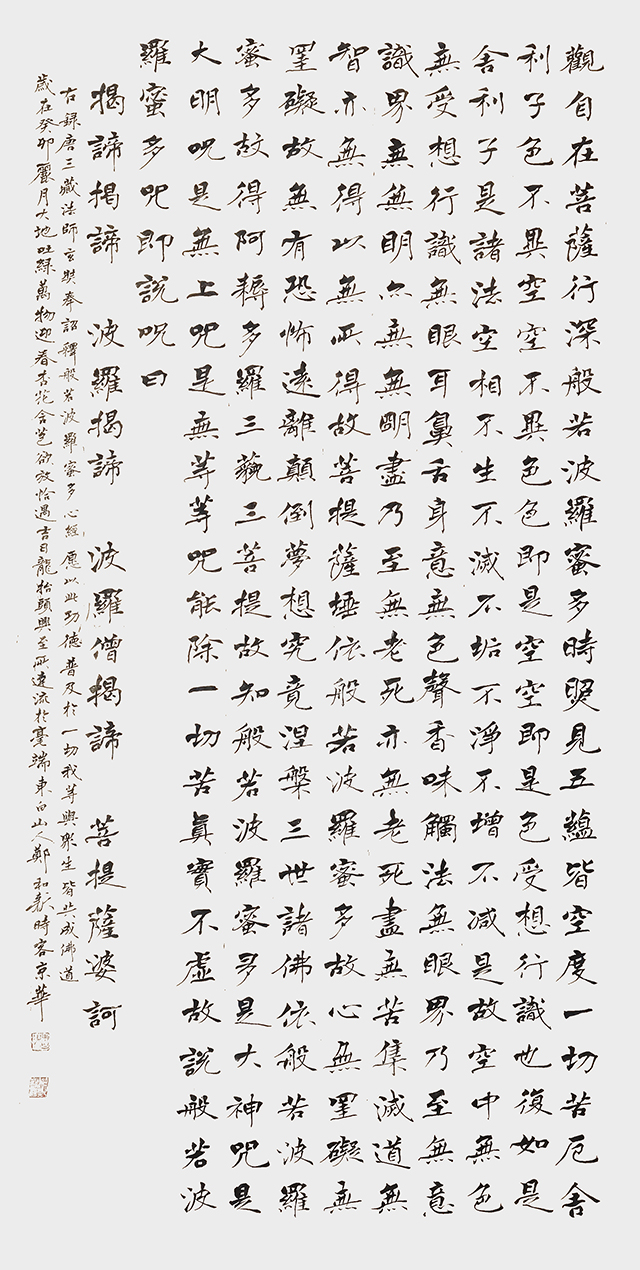 觀自在菩薩行深般若波羅蜜多時照見五蘊皆空度一切苦厄舍
利子色不異空空不異色色即是空空即是色受想行識也復如是
舍利子是諸法空相不生不滅不垢不淨不增不減是故空中無色
無受想行識無眼耳鼻舌身意無色聲香味觸法無眼界乃至無意
識界無無明亦無無明盡乃至無老死亦無老死盡無苦集滅道無
智亦無得以無所得故菩提薩埵依般若波羅蜜多故心無罣礙無
罣礙故無有恐怖遠離顛倒夢想究竟涅槃三世諸佛依般若波羅
蜜多故得阿耨多羅三藐三菩提故知般若波羅蜜多是大神咒是
大明咒是無上咒是無等等咒能除一切苦真實不虛故說般若波
羅蜜多咒即說咒曰
揭諦揭諦 波羅揭諦 波羅僧揭諦 菩提薩婆訶
右錄唐三藏法師玄奘奉詔釋般若波羅蜜多心經愿以此功德普及於一切我等與眾生皆共成佛道
歲在癸卯麗月大地吐綠萬物迎春杏花含苞欲放恰遇吉日龍抬頭興至所達流於毫端東白山人鄭和時客京華